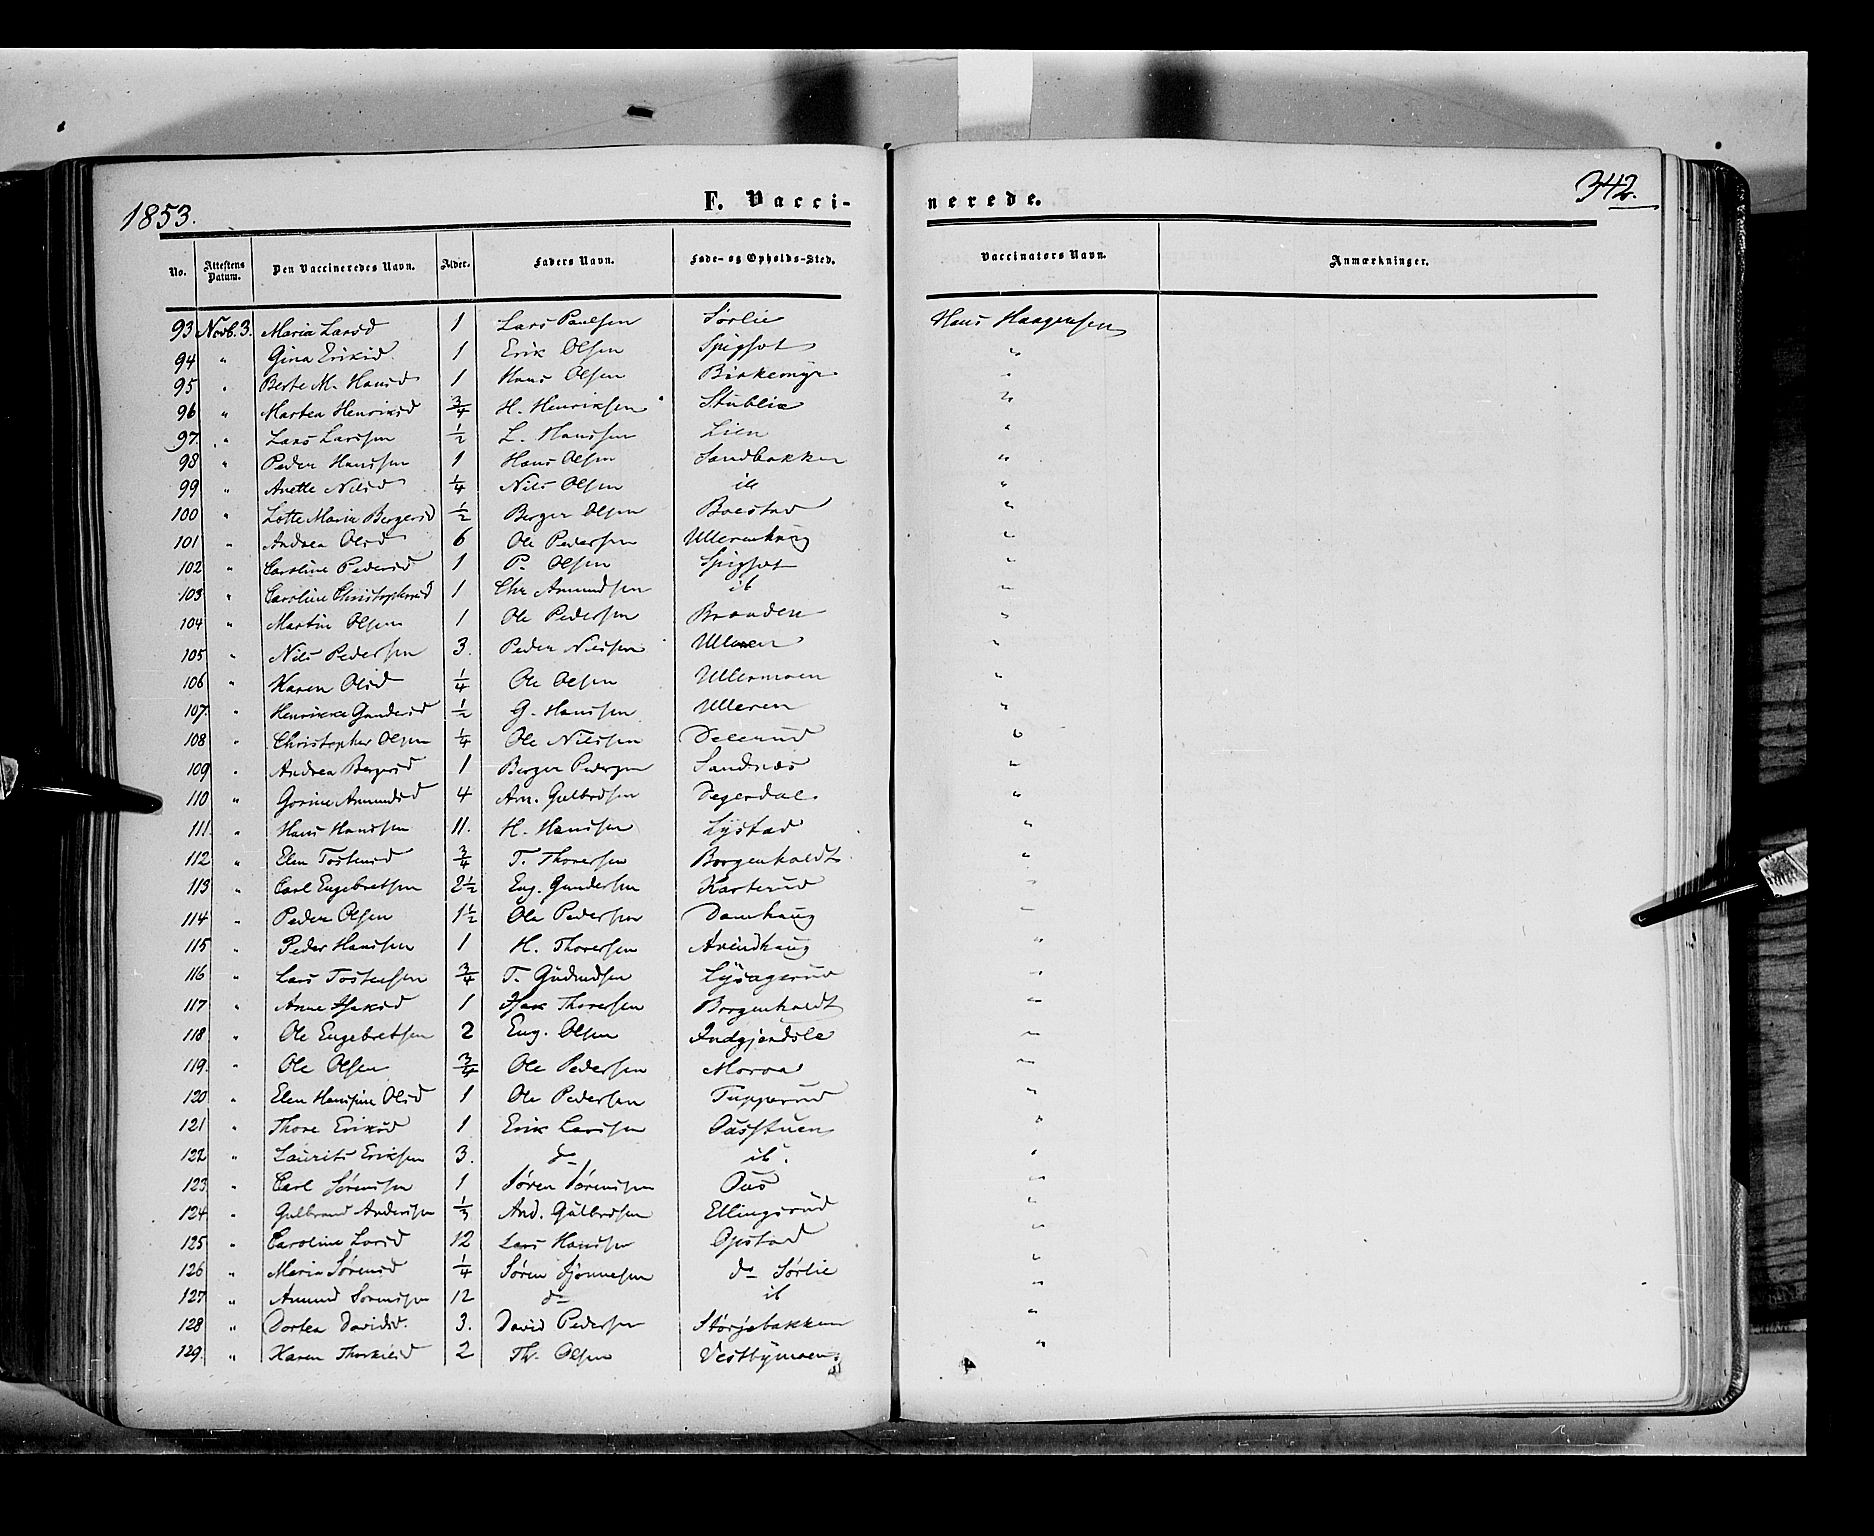 1853. F. Vacci- nerede. 342.
No. Attestens Datum. Den Vaccineredes Navn. Alder. Faders Navn. Føde- og Opholds-Sted. Vaccinators Navn. Anmærkninger.
93 Novb. 3. Maria Larsd 1 Lars Paulsen Sørlie Hans Haagensen
94 " Gina Eriksd. 1 Erik Olsen Spigset "
95 " Berte M. Hansd 1 Hans Olsen Birkemyr "
96 " Martea Henriksd 3/4 H. Henriksen Stublie "
97. " Lars Larssen 1/2 L. Hanssen Lien "
98 " Peder Hanssen 1 Hans Olsen Sandbakken "
99 " Anette Nilsd 1/4 Nils Olsen ib "
100 " Lotte Marie Bergersd 1/2 Berger Olsen Boestad "
101 " Andrea Olsd 6 Ole Pedersen Ullernhaug "
102 " Caroline Pedersd 1 P. Olsen Spigset "
103 " Caroline Christophersd 1 Chr Amundsen ib "
104 " Martin Olsen 1 Ole Pedersen Branden "
105 " Nils Pedersen 3. Peder Nilssen Ulleren "
106 " Karen Olsd 1/4 Ole Olsen Ullermoen "
107. " Henrikke Gundersd 1/2 G. Hanssen Ulleren "
108 " Christopher Olsen 1/4 Ole Nilssen Delerud "
109 " Andrea Bergersd 1 Berger Pedersen Sandnæs "
110 " Gorine Amundsd 4 Am. Gulbrdsen Degerdal "
111. " Hans Hanssen 11. H. Hanssen Lystad "
112 " Elen Tostensd 3/4 T. Thoresen Borgenholdt "
113 " Carl Engebretsen 2 1/2 Eng. Gundersen Karterud "
114 " Peder Olsen 1 1/2 Ole Pedersen Damhaug "
115 " Peder Hanssen 1 H. Thoresen Arindhaug "
116 " Lars Tostensen 3/4 T. Gudmdsen Lysagerud "
117 " Anne Isaksd 1 Isak Thoresen Borgenholdt "
118 " Ole Engebretsen 2 Eng. Olsen Indgjerdsle "
119. " Ole Olsen 3/4 Ole Pedersen Moroa "
120 " Elen Hansine Olsd 1 Ole Pedersen Tupperud "
121 " Thore Eriksd 1 Erik Larssen Aasstuen "
122 " Laurits Eriksen 3. do ib. "
123 " Carl Sørenssen 1 Søren Sørenssen Aas "
124 " Gulbrand Anderssen 1/3 And. Gulbrdsen Ellingsrud "
125 " Caroline Larsd 12 Lars Hanssen Opstad "
126 " Maria Sørensd 1/4 Søren Sjønnesen do Sørlie "
127 " Amund Sørenssen 12 do ib "
128 " Dortea Davidsd. 3. David Pedersen Størjebakken "
129. " Karen Thorkilsd 2 Th. Olsen Vestbymoen "